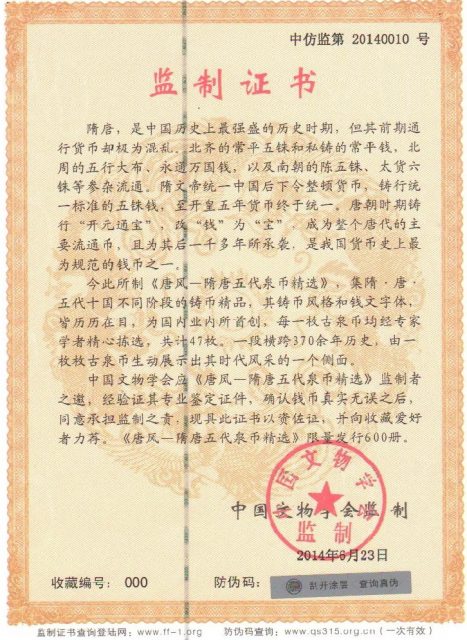 中仿监第 20140010 号
监制证书
隋唐，是中国历史上最强盛的历史时期，但其前期通
行货币却极为混乱，北齐的常平五铢和私铸的常平钱，北
周的五行大布、永通万国钱，以及南朝的陈五铢、太货六
铢等参杂流通。隋文帝统一中国后下令整顿货币，铸行统
一标准的五铢钱，至开皇五年货币终于统一。唐朝时期铸
行“开元通宝”，改“钱”为“宝”，成为整个唐代的主
要流通币，且为其后一千多年所承袭，是我国货币史上最
为规范的钱币之一。
今此所制《唐风—隋唐五代泉币精选》，集隋·唐·
五代十国不同阶段的铸币精品，其铸币风格和钱文字体，
皆历历在目，为国内业内所首创，每一枚古泉币均经专家
学者精心拣选，共计47枚。一段横跨370余年历史，由一
枚枚古泉币生动展示出其时代风采的一个侧面。
中国文物学会应《唐风—隋唐五代泉币精选》监制者
之邀，经验证其专业鉴定证件，确认钱币真实无误之后，
同意承担监制之责，现具此证书以资佐证，并向收藏爱好
者力荐。《唐风—隋唐五代泉币精选》限量发行600册。
中国文物学会
监制
中国文物学会监制
2014年6月23日
收藏编号： 000
防伪码：
刮开涂层 查询真伪
监制证书查询登陆网：www.ff-1.org
防伪码查询：www.qs315.org.cn（一次有效）